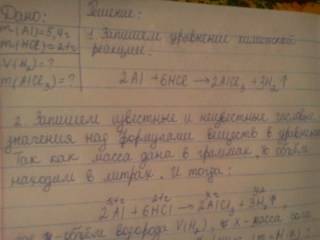 Дано:
m(Al)=5,4г
m(HCl)=2+г
V(H₂)=?
m(AlCl₃)=?
Решение:
1. Запишем уравнение химической
реакции:
2Al + 6HCl → 2AlCl₃ + 3H₂↑
2. Запишем известные и неизвестные числовые
значения над формулами веществ в уравнении
Так как масса дана в граммах, то объём
находим в литрах. И тогда:
2Al + 6HCl → 2AlCl₃ + 3H₂↑
объём водорода V(H₂), X-масса соли